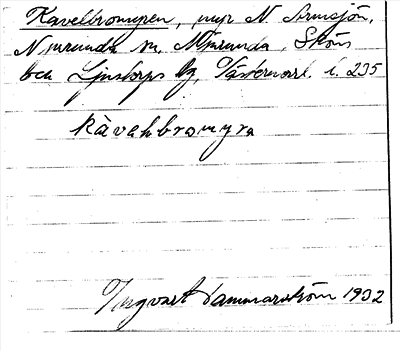 Kavelbromyren, myr N. Armsjön,
Njurunda sn. Njurunda, Sköns
och Ljustorps tg, Västernorrl. l. 235
kàvahbromyra
Ingvart Hammarström 1932